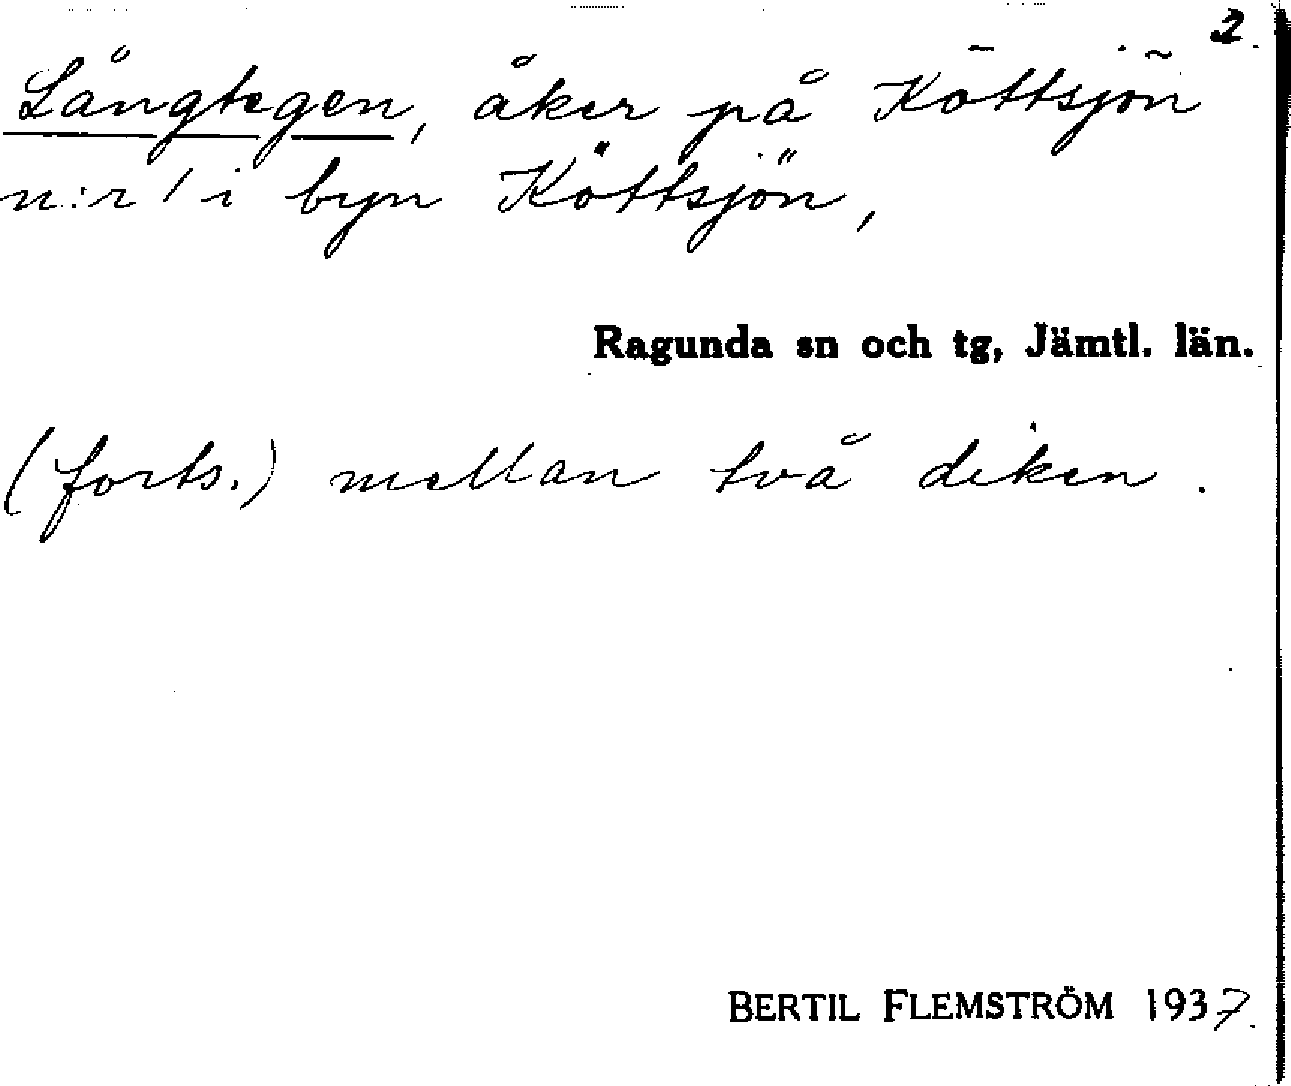 2.
Långtegen, åker på Köttsjön
n:r 1 i byn Köttsjön,
Ragunda sn och tg, Jämtl. län.
(forts.) mellan två diken.
BERTIL FLEMSTRÖM 1937.